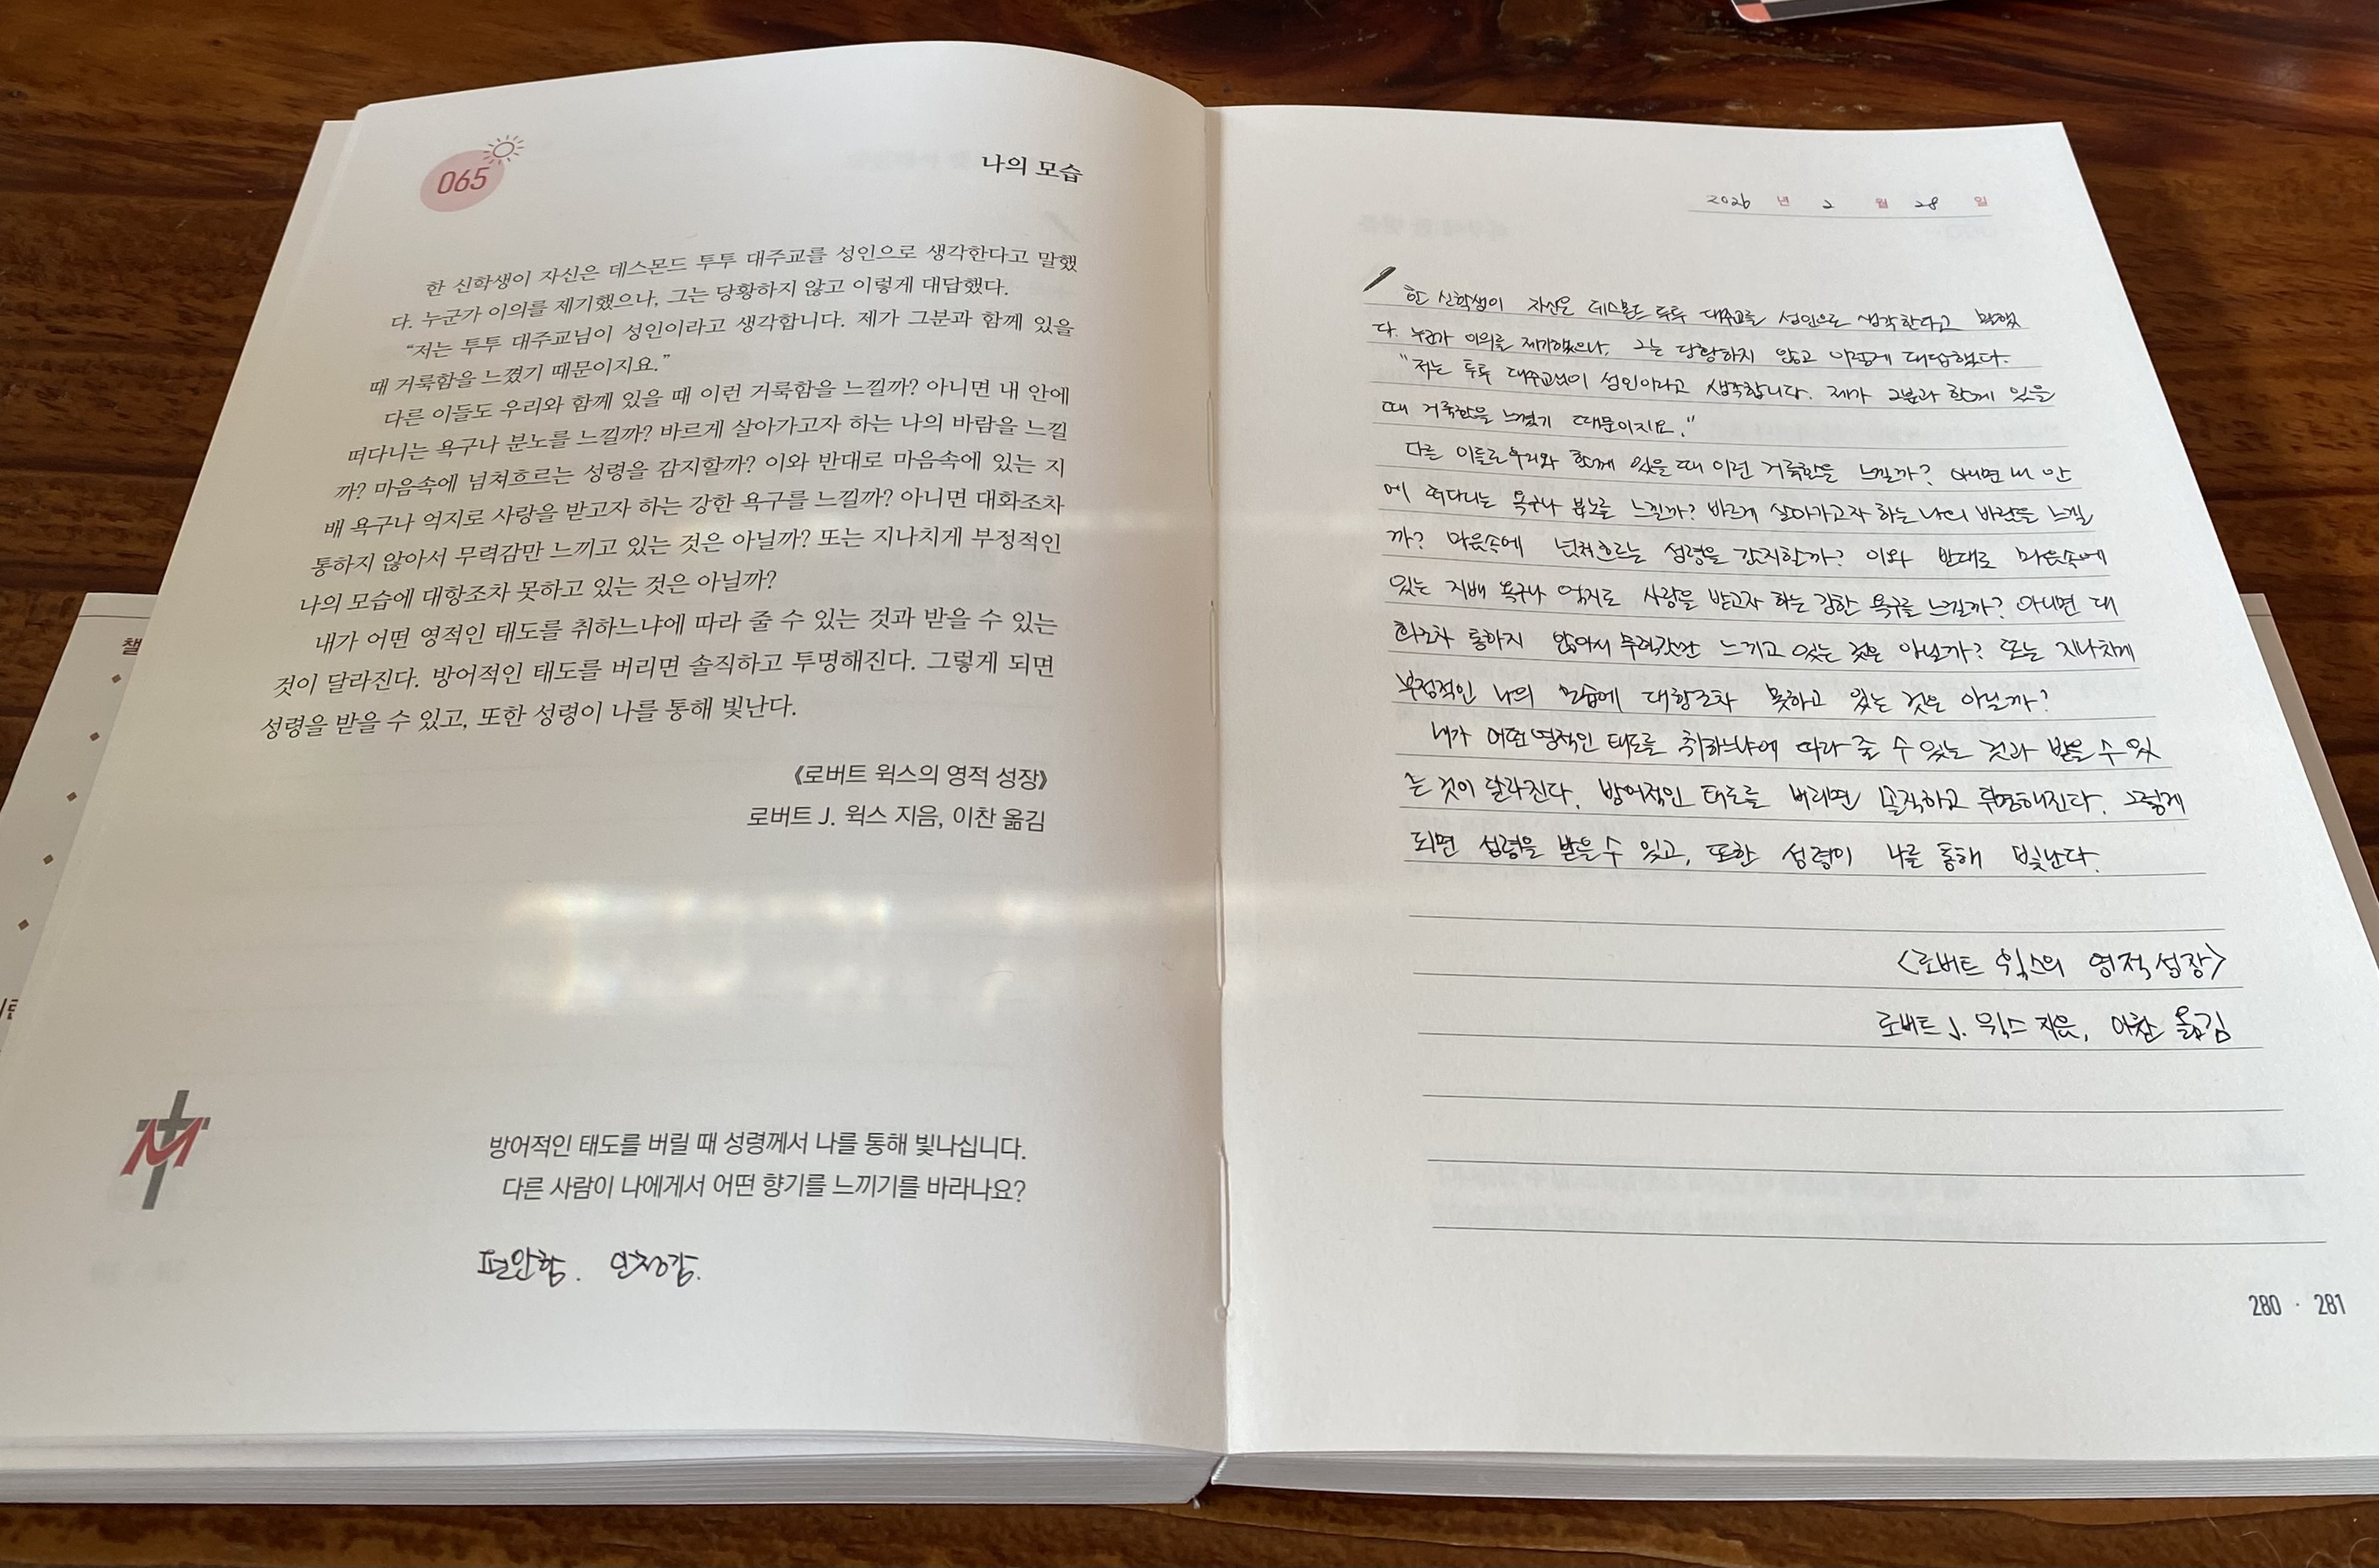 065
나의 모습
한 신학생이 자신은 데스몬드 투투 대주교를 성인으로 생각한다고 말했
다. 누군가 이의를 제기했으나, 그는 당황하지 않고 이렇게 대답했다.
“저는 투투 대주교님이 성인이라고 생각합니다. 제가 그분과 함께 있을
때 거룩함을 느꼈기 때문이지요.”
다른 이들도 우리와 함께 있을 때 이런 거룩함을 느낄까? 아니면 내 안에
떠다니는 욕구나 분노를 느낄까? 바르게 살아가고자 하는 나의 바람을 느낄
까? 마음속에 넘쳐흐르는 성령을 감지할까? 이와 반대로 마음속에 있는 지
배 욕구나 억지로 사랑을 받고자 하는 강한 욕구를 느낄까? 아니면 대화조차
통하지 않아서 무력감만 느끼고 있는 것은 아닐까? 또는 지나치게 부정적인
나의 모습에 대항조차 못하고 있는 것은 아닐까?
내가 어떤 영적인 태도를 취하느냐에 따라 줄 수 있는 것과 받을 수 있는
것이 달라진다. 방어적인 태도를 버리면 솔직하고 투명해진다. 그렇게 되면
성령을 받을 수 있고, 또한 성령이 나를 통해 빛난다.
《로버트 윅스의 영적 성장》
로버트 J. 윅스 지음, 이찬 옮김
방어적인 태도를 버릴 때 성령께서 나를 통해 빛나십니다.
다른 사람이 나에게서 어떤 향기를 느끼기를 바라나요?
편안함. 안정감.
챌
2026 년 2 월 28 일
한 신학생이 자신은 데스몬드 투투 대주교를 성인으로 생각한다고 말했
다. 누군가 이의를 제기했으나, 그는 당황하지 않고 이렇게 대답했다.
"저는 투투 대주교님이 성인이라고 생각합니다. 제가 그분과 함께 있을
때 거룩함을 느꼈기 때문이지요."
다른 이들도 우리와 함께 있을 때 이런 거룩함을 느낄까? 아니면 내 안
에 떠다니는 욕구나 분노를 느낄까? 바르게 살아가고자 하는 나의 바람을 느낄
까? 마음속에 넘쳐흐르는 성령을 감지할까? 이와 반대로 마음속에
있는 지배 욕구나 억지로 사랑을 받고자 하는 강한 욕구를 느낄까? 아니면 대
화조차 통하지 않아서 무력감만 느끼고 있는 것은 아닐까? 또는 지나치게
부정적인 나의 모습에 대항조차 못하고 있는 것은 아닐까?
내가 어떤 영적인 태도를 취하느냐에 따라 줄 수 있는 것과 받을 수 있
는 것이 달라진다. 방어적인 태도를 버리면 솔직하고 투명해진다. 그렇게
되면 성령을 받을 수 있고, 또한 성령이 나를 통해 빛난다.
<로버트 윅스의 영적 성장>
로버트 J. 윅스 지음, 이찬 옮김
280 · 281